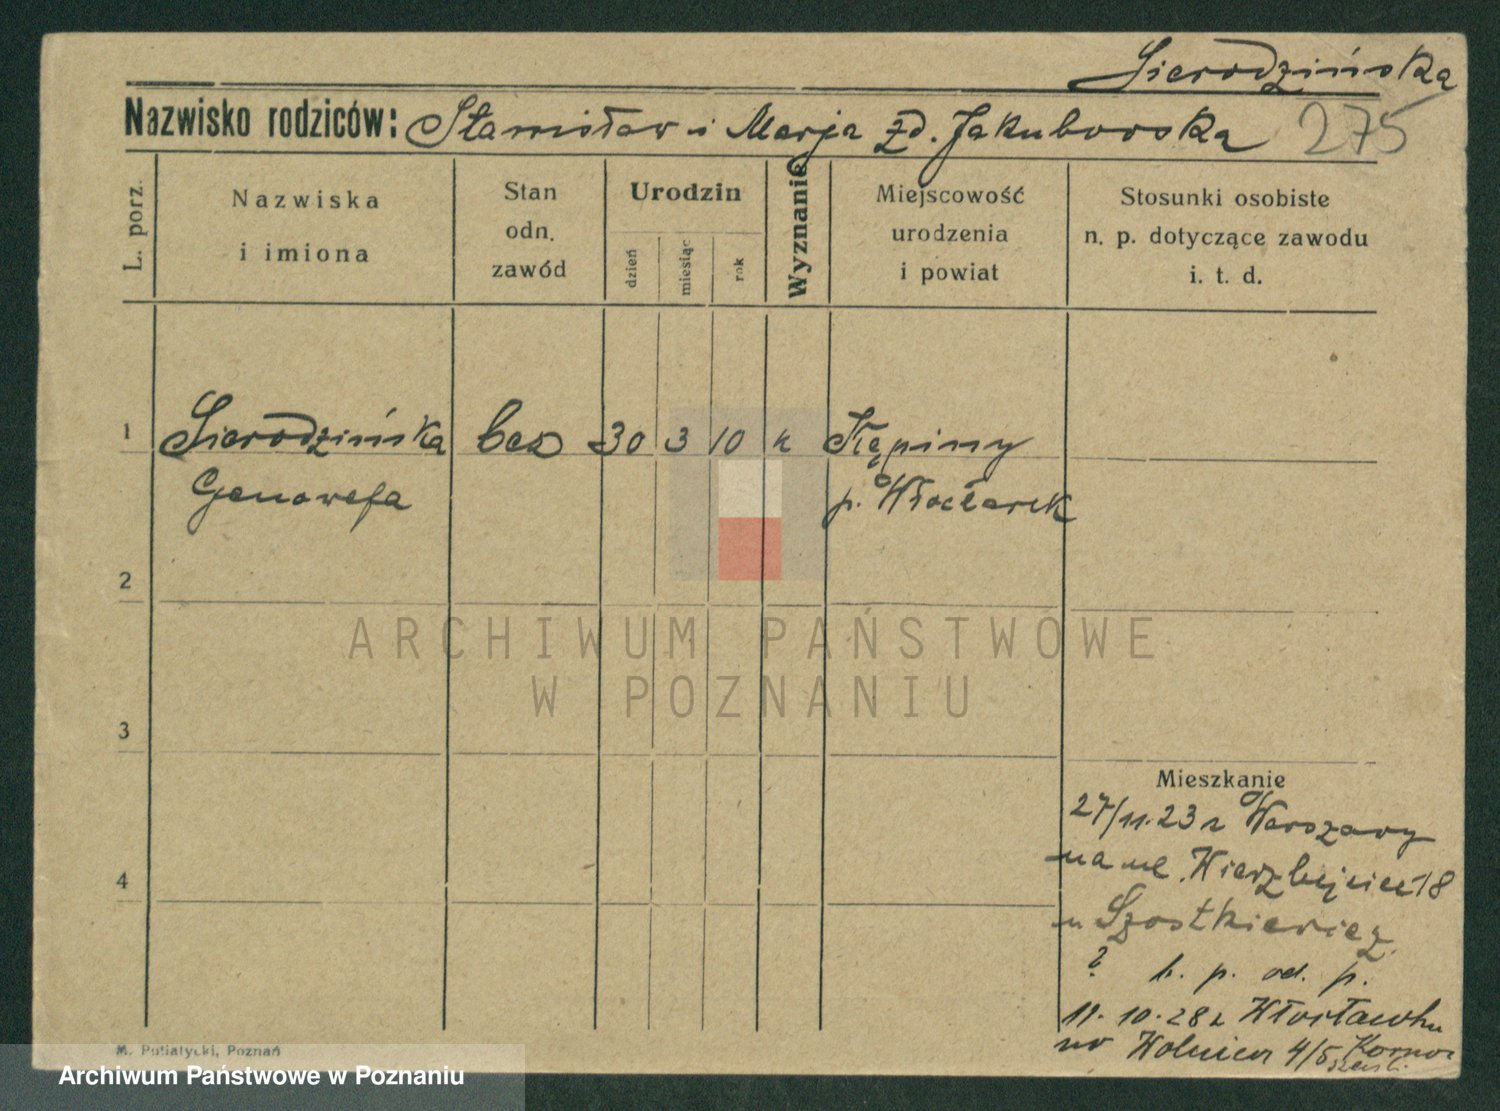 Sierodzińska
Nazwisko rodziców: Stanisław i Marja zd. Jakubowska 275
L. porz.
Nazwiska
i imiona
Stan
odn.
zawód
Urodzin
dzień
miesiąc
rok
Wyznanie
Miejscowość
urodzenia
i powiat
Stosunki osobiste
n. p. dotyczące zawodu
i. t. d.
1 Sierodzińska bez 30 3 10 k Kępiny
Genowefa p. Włocławek
2
3
4
ARCHIWUM PAŃSTWOWE
W POZNANIU
Mieszkanie
27/11.23 z Warszawy
na ul. Wierzbięcice 18
u Szostkiewicz
? b. p. od. p.
11.10.28 z Włocławka
Wolnica 4/5
M. Putiatycki, Poznań
Archiwum Państwowe w Poznaniu